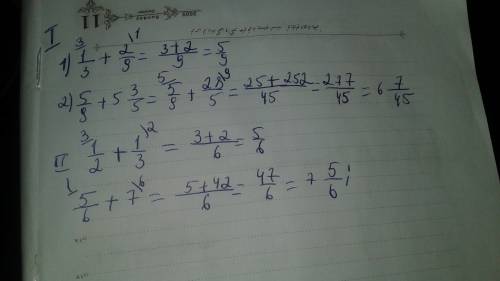 I
1) 1/3 + 2/9 = 3+2/9 = 5/9
2) 5/9 + 5 3/5 = 5/9 + 28/5 = 25+252/45 = 277/45 = 6 7/45
II
1/2 + 1/3 = 3+2/6 = 5/6
5/6 + 7 = 5+42/6 = 47/6 = 7 5/6